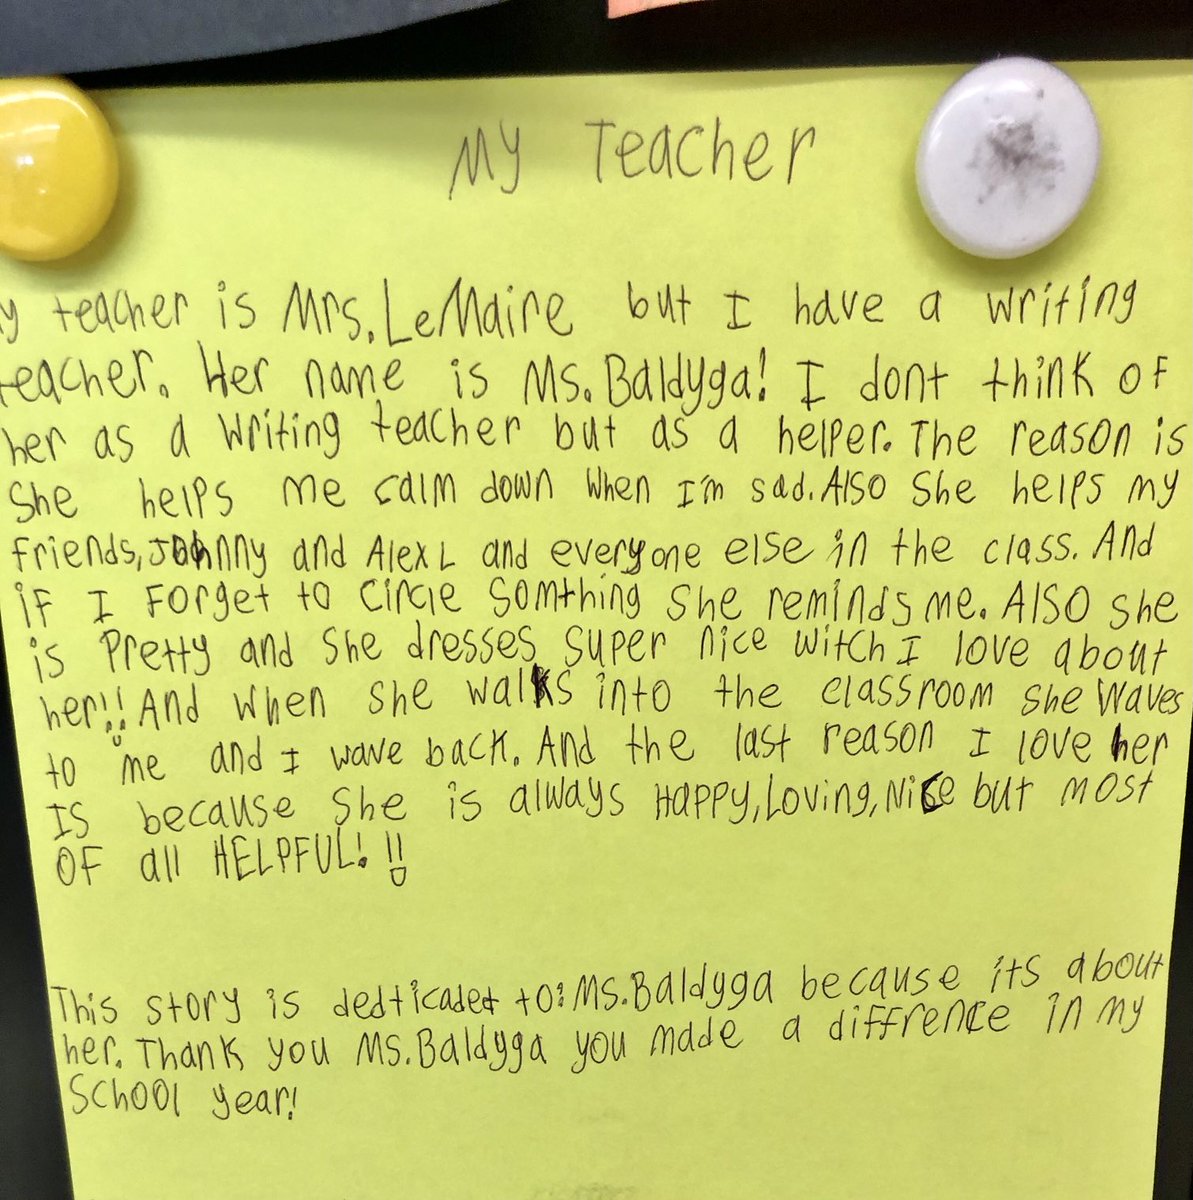 My Teacher
y teacher is Mrs. LeMaire but I have a writing
teacher. Her name is Ms. Baldyga! I dont think of
her as a writing teacher but as a helper. The reason is
She helps me calm down when I'm sad. Also She helps my
friends, Johnny and Alex L and everyone else in the class. And
if I Forget to circle somthing she reminds me. Also she
is Pretty and she dresses super nice witch I love about
her!! And when she walks into the classroom she waves
to me and I wave back. And the last reason I love her
Is because she is always Happy, Loving, Nice but most
OF all HELPFUL! !!
This story is dedticadet to: Ms. Baldyga because its about
her. Thank you Ms. Baldyga you made a diffrence in my
School year!